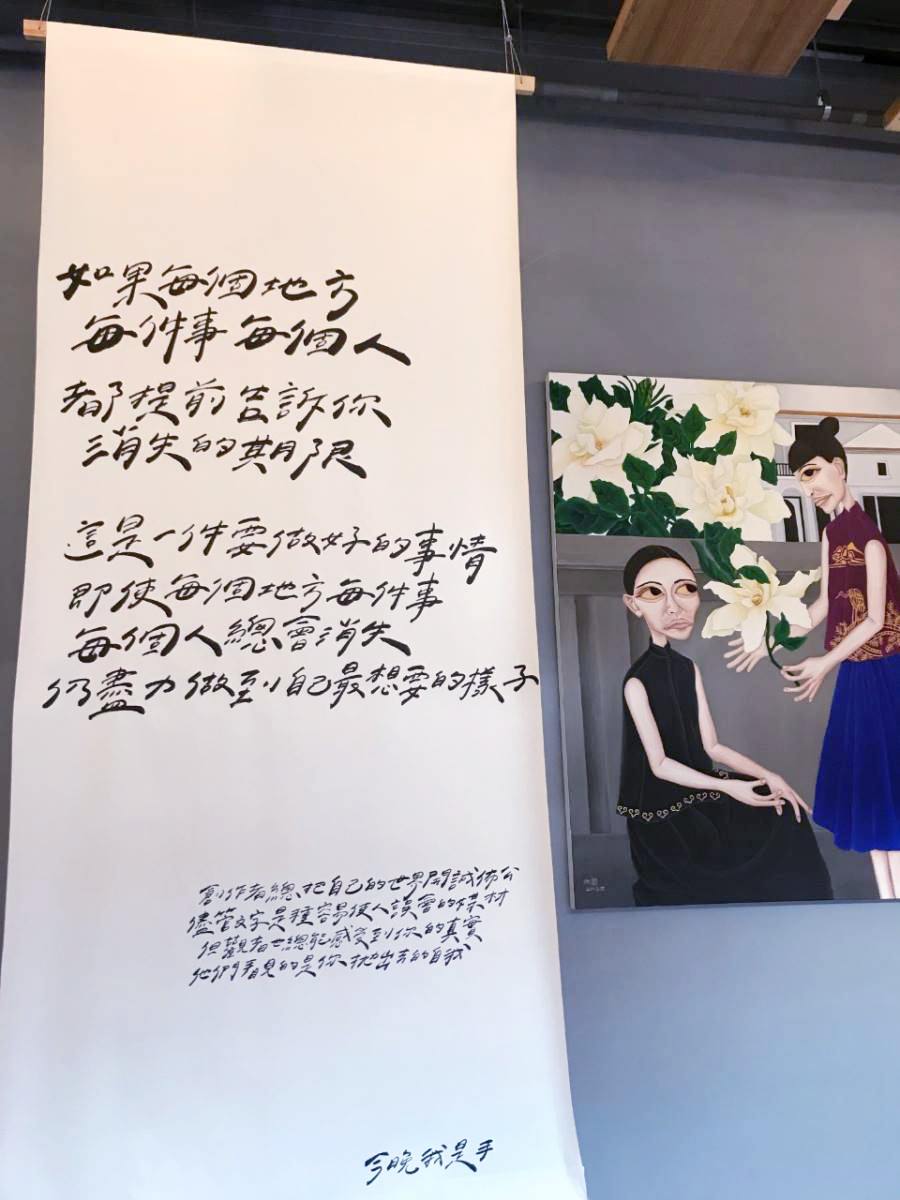 如果每個地方
每件事 每個人
都提前告訴你
消失的期限
這是一件要做好的事情
即使每個地方每件事
每個人總會消失
仍盡力做到自己最想要的樣子
創作者總把自己的世界開誠佈公
儘管文字是種容易使人誤會的媒材
但觀者也總能感受到你的真實
他們看見的是你拋出去的自我
今晚我是手